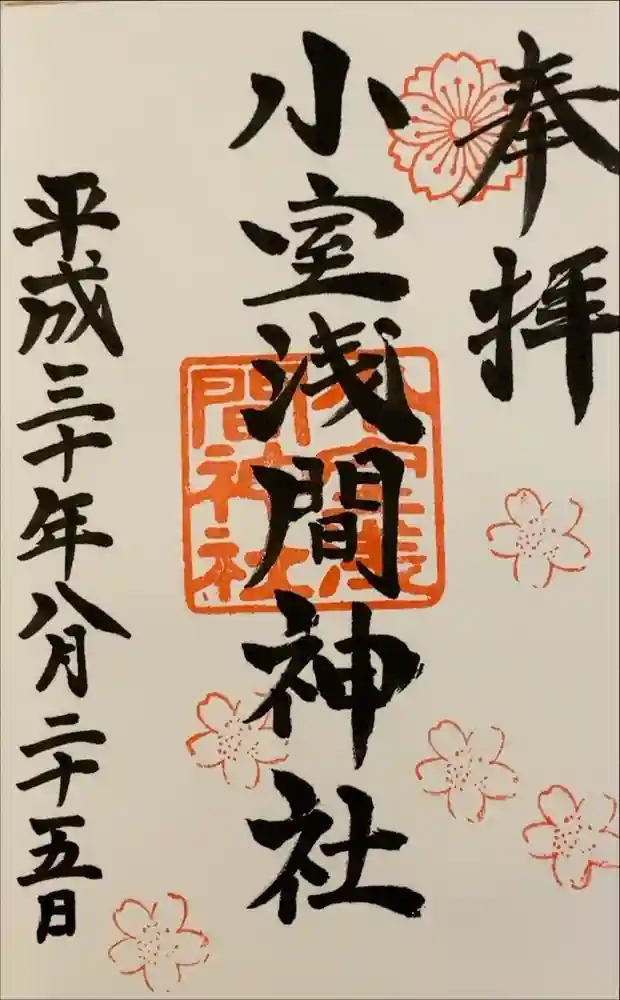 奉拝
小室浅間神社
平成三十年八月二十五日
間神社